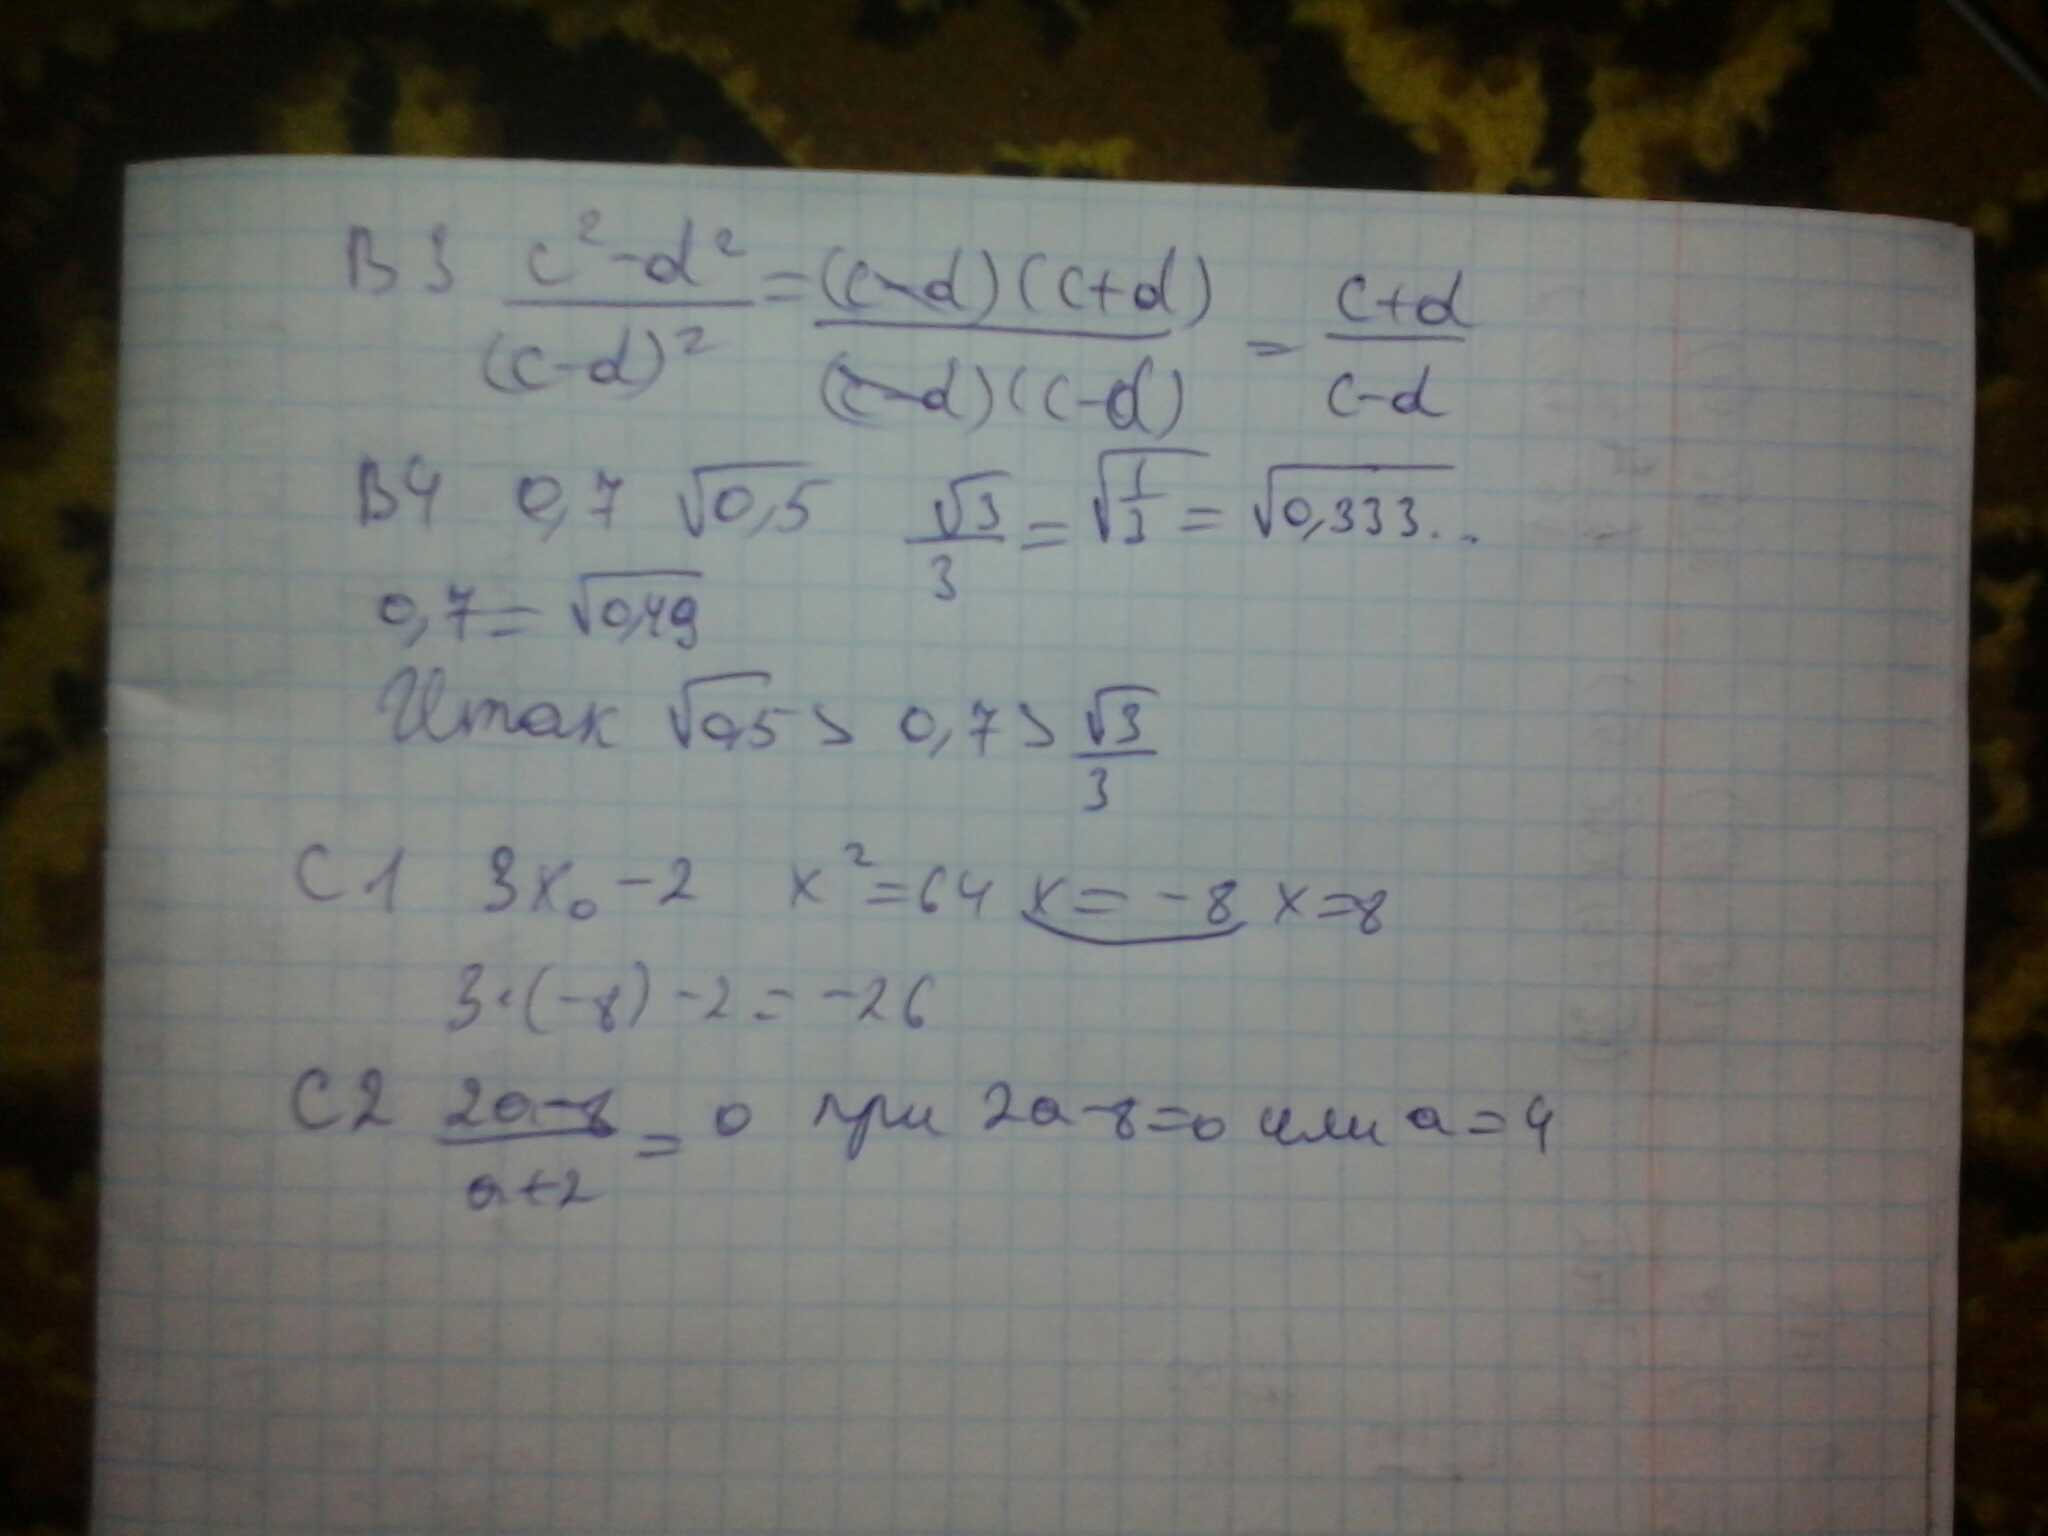 В3 (c²-d²)/(c-d)² = (c-d)(c+d)/(c-d)(c-d) = (c+d)/(c-d)
В4 0,7 √0,5 √3/3 = √(1/3) = √0,333...
0,7 = √0,49
Итак √0,5 > 0,7 > √3/3
С1 3x₀ - 2 x² = 64 x = -8 x = 8
3·(-8) - 2 = -26
С2 (2a-8)/(a+2) = 0 при 2a-8=0 или a=4